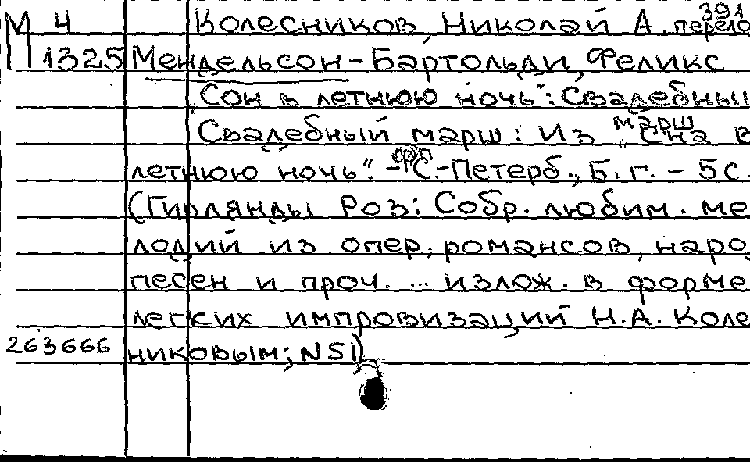 М 4 Колесников, Николай А. перело 391
1325 Мендельсон-Бартольди, Феликс
"Сон в летнюю ночь": Свадебный
марш
Свадебный марш: Из "Сна в
летнюю ночь". - С.-Петерб., Б.г. - 5с.
(Гирлянды Роз: Собр. любим. ме
лодий из опер, романсов, наро
песен и проч. ... излож. в форме
легких импровизаций Н.А. Коле
263666 никовым; N51)